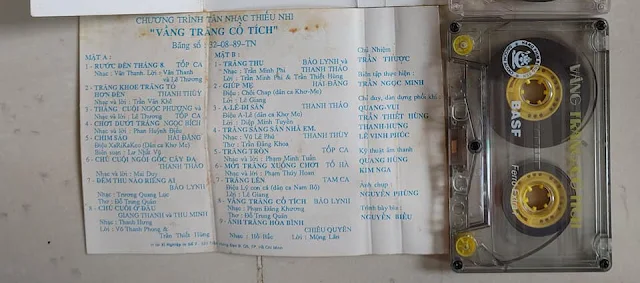 CHƯƠNG TRÌNH TÂN NHẠC THIẾU NHI
"VẦNG TRĂNG CỔ TÍCH"
Băng số : 32-08-89-TN
MẶT A :
1 - RƯỚC ĐÈN THÁNG 8 TỐP CA
Nhạc : Văn Thanh Lời : Văn Thanh
và Lê Thương
2 - TRĂNG KHOE TRĂNG TỎ
HƠN ĐÈN THANH THÚY
Nhạc và lời : Trần Văn Khê
3 - THẰNG CUỘI NGỌC PHƯỢNG và
Nhạc và lời : Lê Thương TỐP CA
4 - CHƠI DƯỚI TRĂNG NGỌC BÍCH
Nhạc và lời : Phan Huỳnh Điểu
5 - CHIM SÁO HẢI ĐĂNG
Điệu XaRiKaKeo (Dân ca Khơ Me)
Biên soạn : Lư Nhất Vũ
6 - CHÚ CUỘI NGỒI GỐC CÂY ĐA
THANH THẢO
Nhạc và lời : Mai Duy
7 - ĐÊM THU NÀO RIÊNG AI.
BẢO LINH
Nhạc : Trương Quang Lục
Thơ : Đỗ Trung Quân
8 - CHÚ CUỘI Ở ĐÂU
GIANG THANH và THU MINH
Nhạc : Thanh Hưng
Lời : Võ Thanh Phong &
Trần Thiết Hùng
MẶT B :
1 - TRĂNG THU BẢO LINH và
Nhạc : Trần Minh Phi THANH THẢO
Lời : Trần Minh Phi & Trần Thiết Hùng
2 - GIÚP MẸ HẢI ĐĂNG
Điệu : Chốc Chap (dân ca Khơ Me)
Lời : Lê Giang
3 - A-LÊ-ĐI SĂN THANH THẢO
Điệu A-Lê (dân ca Khơ Me)
Lời : Diệp Minh Tuyền
4 - TRĂNG SÁNG SÂN NHÀ EM.
Nhạc : Vũ Lê Phú THANH THÚY
Thơ : Trần Đăng Khoa
5 - TRĂNG TRÒN TỐP CA
Nhạc và lời : Phạm Minh Tuấn
6 - MỜI TRĂNG XUỐNG CHƠI TÔ HÀ
Nhạc và lời : Phạm Thúy Hoan
7 - TRĂNG LÊN TAM CA
Điệu Lý con cá (dân ca Nam Bộ)
Lời : Lê Giang
8 - VẦNG TRĂNG CỔ TÍCH BẢO LINH
Nhạc : Phạm Đăng Khương
Thơ : Đỗ Trung Quân
9 - ÁNH TRĂNG HÒA BÌNH
CHIÊU QUYỀN
Nhạc : Hồ Bắc Lời : Mộng Lân
Chủ Nhiệm :
TRẦN THƯỢC
Biên tập thực hiện :
TRẦN NGỌC MINH
Chỉ đạo, dàn dựng phối khí :
QUANG VUI
TRẦN THIẾT HÙNG
THANH-HƯNG
LÊ VINH PHÚC
Kỹ thuật âm thanh
QUANG HÙNG
KIM NGA
Ảnh chụp :
NGUYÊN PHỤNG
Trình bày bìa :
NGUYÊN BIỂU
BASF
VẦNG TRĂNG CỔ TÍCH